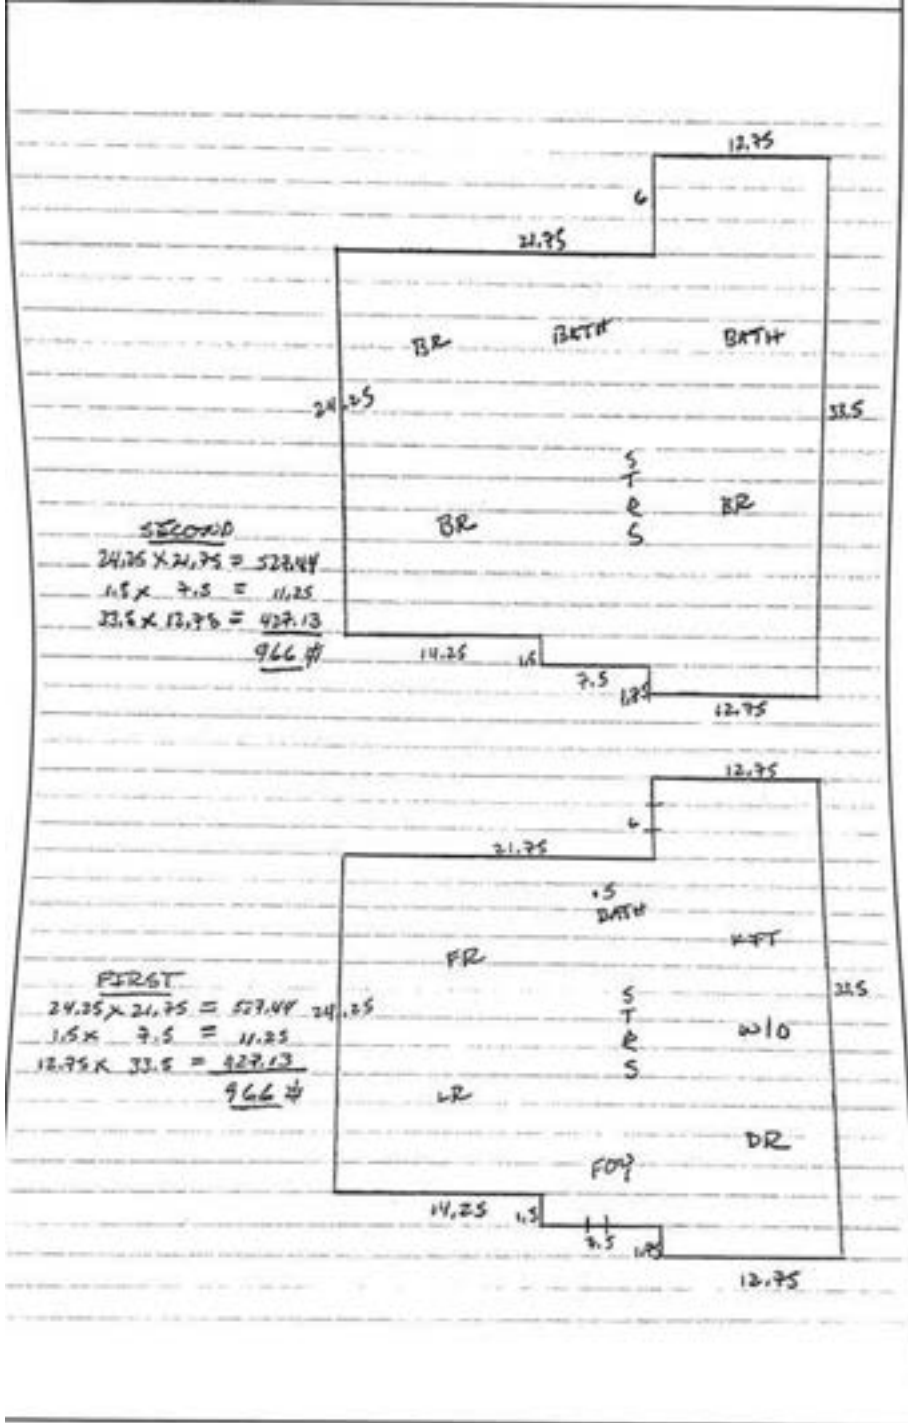 12.75
6
21.75
BR BATH BATH
24.25 33.5
S
T
R
S
BR BR
SECOND
24.25 X 21.75 = 527.44
1.5 x 7.5 = 11.25
33.5 x 12.75 = 427.13
966 #
14.25 1.5
7.5 1.75
12.75
12.75
6
21.75
.5
BATH
FR KIT
FIRST
24.25 x 21.75 = 527.44 24.25 33.5
1.5 x 7.5 = 11.25
12.75 x 33.5 = 427.13
966 #
S
T
R
S
W/O
LR
DR
FOY
14.25 1.5
7.5 1.75
12.75